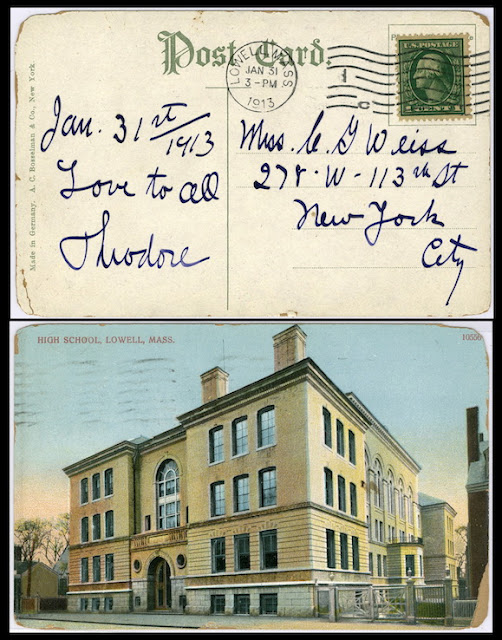 Post Card.
LOWELL, MASS.
JAN 31
3-PM
1913
1
C
U.S. POSTAGE
Jan. 31st/1913
Love to all
Theodore
Miss. C. G Weiss
278. W - 113th St
New York
City
Made in Germany, A. C. Bosselman & Co., New York
HIGH SCHOOL, LOWELL, MASS.
10556